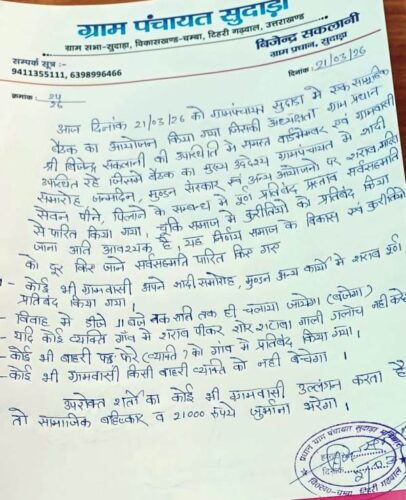 ग्राम पंचायत सुदाड़ा
ग्राम सभा-सुदाड़ा, विकासखण्ड-चम्बा, टिहरी गढ़वाल, उत्तराखण्ड
सम्पर्क सूत्र :-
9411355111, 6398996466
बिजेन्द्र सकलानी
ग्राम प्रधान, सुदाड़ा
क्रमांक: 24/26
दिनांक: 21/03/26
आज दिनांक 21/03/26 को ग्रामपंचायत सुदाड़ा में एक सामूहिक
बैठक का आयोजन किया गया जिसकी अध्यक्षता ग्राम प्रधान
श्री बिजेन्द्र सकलानी की उपस्थिति में समस्त वार्डमेम्बर एवं ग्रामवासी
उपस्थित रहे जिसमे बैठक का मुख्य उद्देश्य ग्रामपंचायत में शादी
समारोह, जन्मदिन, मुण्डन संस्कार एवं अन्य आयोजनो पर शराब
सेवन पीने, पिलाने के सम्बन्ध में पूर्ण प्रतिबंद प्रस्ताव सर्वसहमति
से पारित किया गया। चूंकि समाज में कुरीतियों को प्रतिबंद किया
जाना अति आवश्यक है। यह निर्णय समाज के विकास एवं कुरीतियो
को दूर किए जाने सर्वसहमति पारित किए गए
- कोई भी ग्रामवासी अपने शादी समारोह, मुण्डन अन्य कार्यो में शराब पूर्ण
प्रतिबंद किया गया।
- विवाह में डीजे 11 बजे तक रात्रि तक ही चलाया जायेगा (बजेगा)
- यदि कोई व्यक्ति गाँव में शराब पीकर शोर शराबा गाली गलाच नही करेगा
- कोई भी बाहरी फेरी (व्यक्ति) को गाँव में प्रतिबंद किया गया।
- कोई भी ग्रामवासी किसी बाहरी व्यक्ति को नही बेचेगा।
उपरोक्त शर्तो का कोई भी ग्रामवासी उल्लंगन करता है
तो सामाजिक बहिष्कार व 21000 रुपये जुर्माना भरेगा।
प्रधान ग्राम पंचायत सुदाड़ा
दिनांक
वि०ख०-चम्बा, टिहरी गढ़वाल